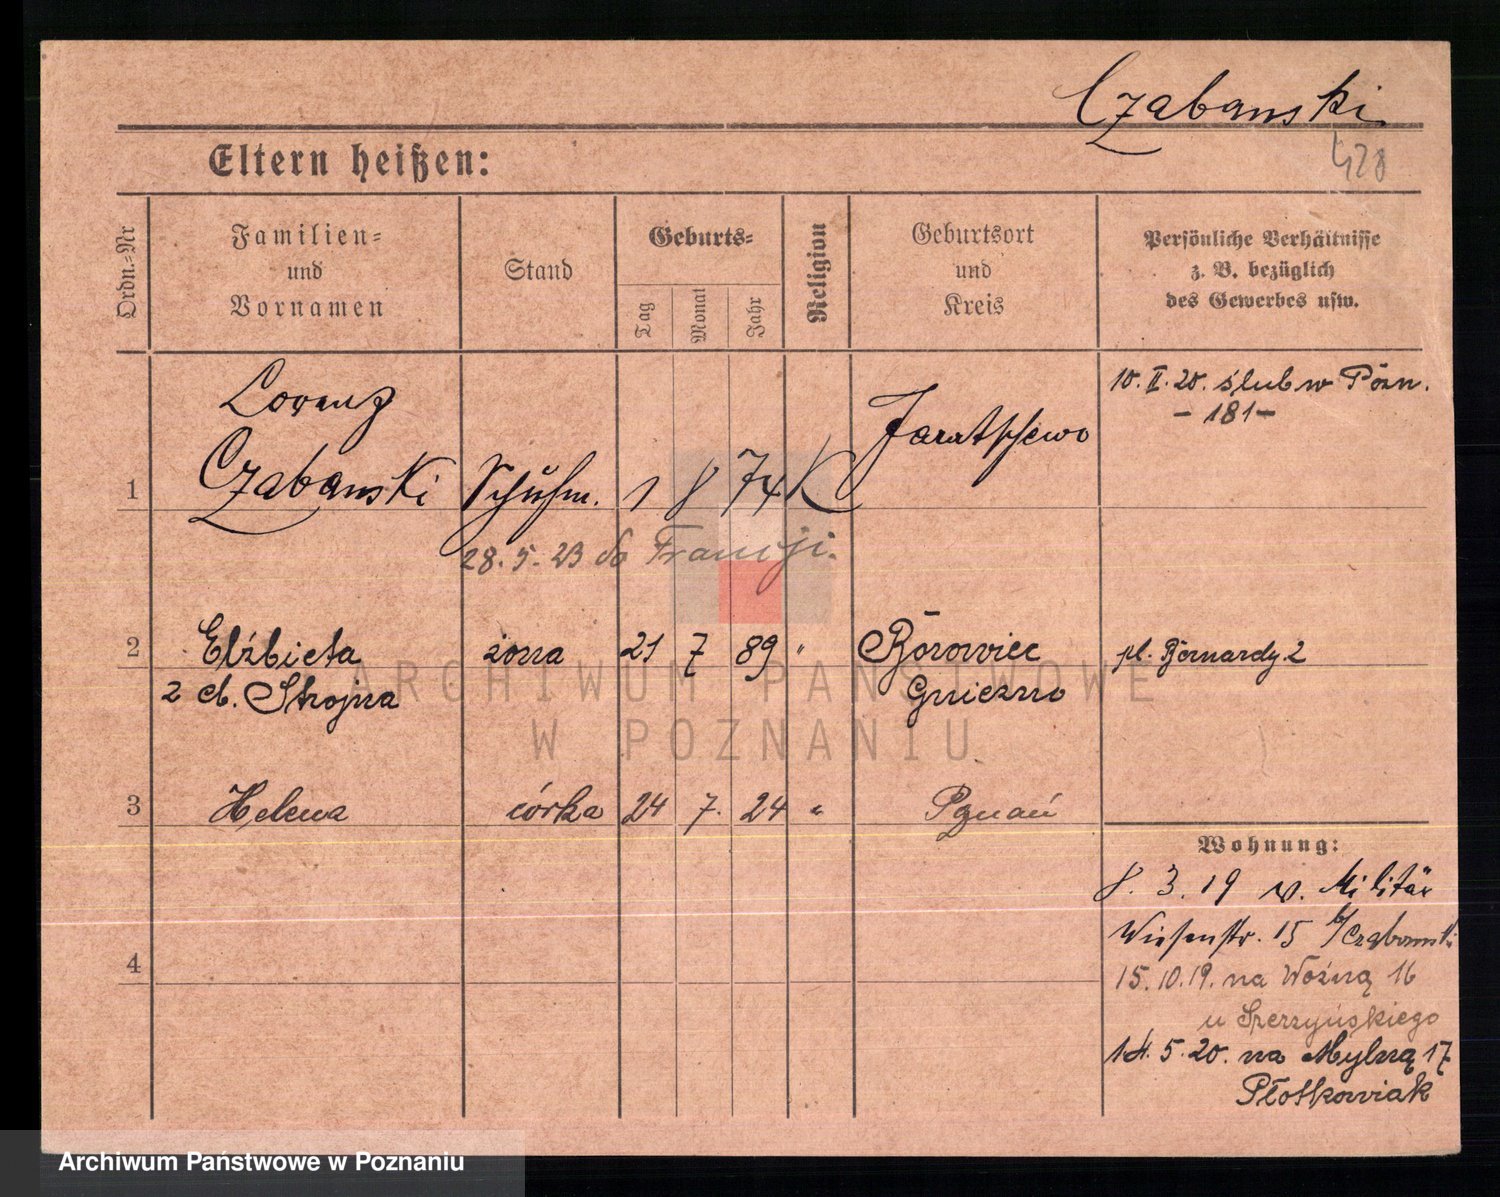 Czabanski
428
Eltern heißen:
Ordn.-Nr
Familien-
und
Vornamen
Stand
Geburts-
Tag
Monat
Jahr
Religion
Geburtsort
und
Kreis
Persönliche Verhältnisse
z. B. bezüglich
des Gewerbes usw.
10. II. 20. ślub w Pozn.
- 181 -
Lorenz
Jaratschewo
1 Czabanski Schuhm. 1 8 74 K
28. 5. 23 do Francji.
2 Elżbieta żona 21 7 89 " Borowiec pl. Bernardy 2
2 cb. Strojna Gniezno
3 Helena córka 24 7. 24 " Poznań
Wohnung:
8. 3. 19 v. Militär
Wiesenstr. 15 b/Czabanski
15. 10. 19. na Woźną 16
u Sperzyńskiego
14. 5. 20. na Mylną 17
Płotkowiak
4
ARCHIWUM PAŃSTWOWE
W POZNANIU
Archiwum Państwowe w Poznaniu